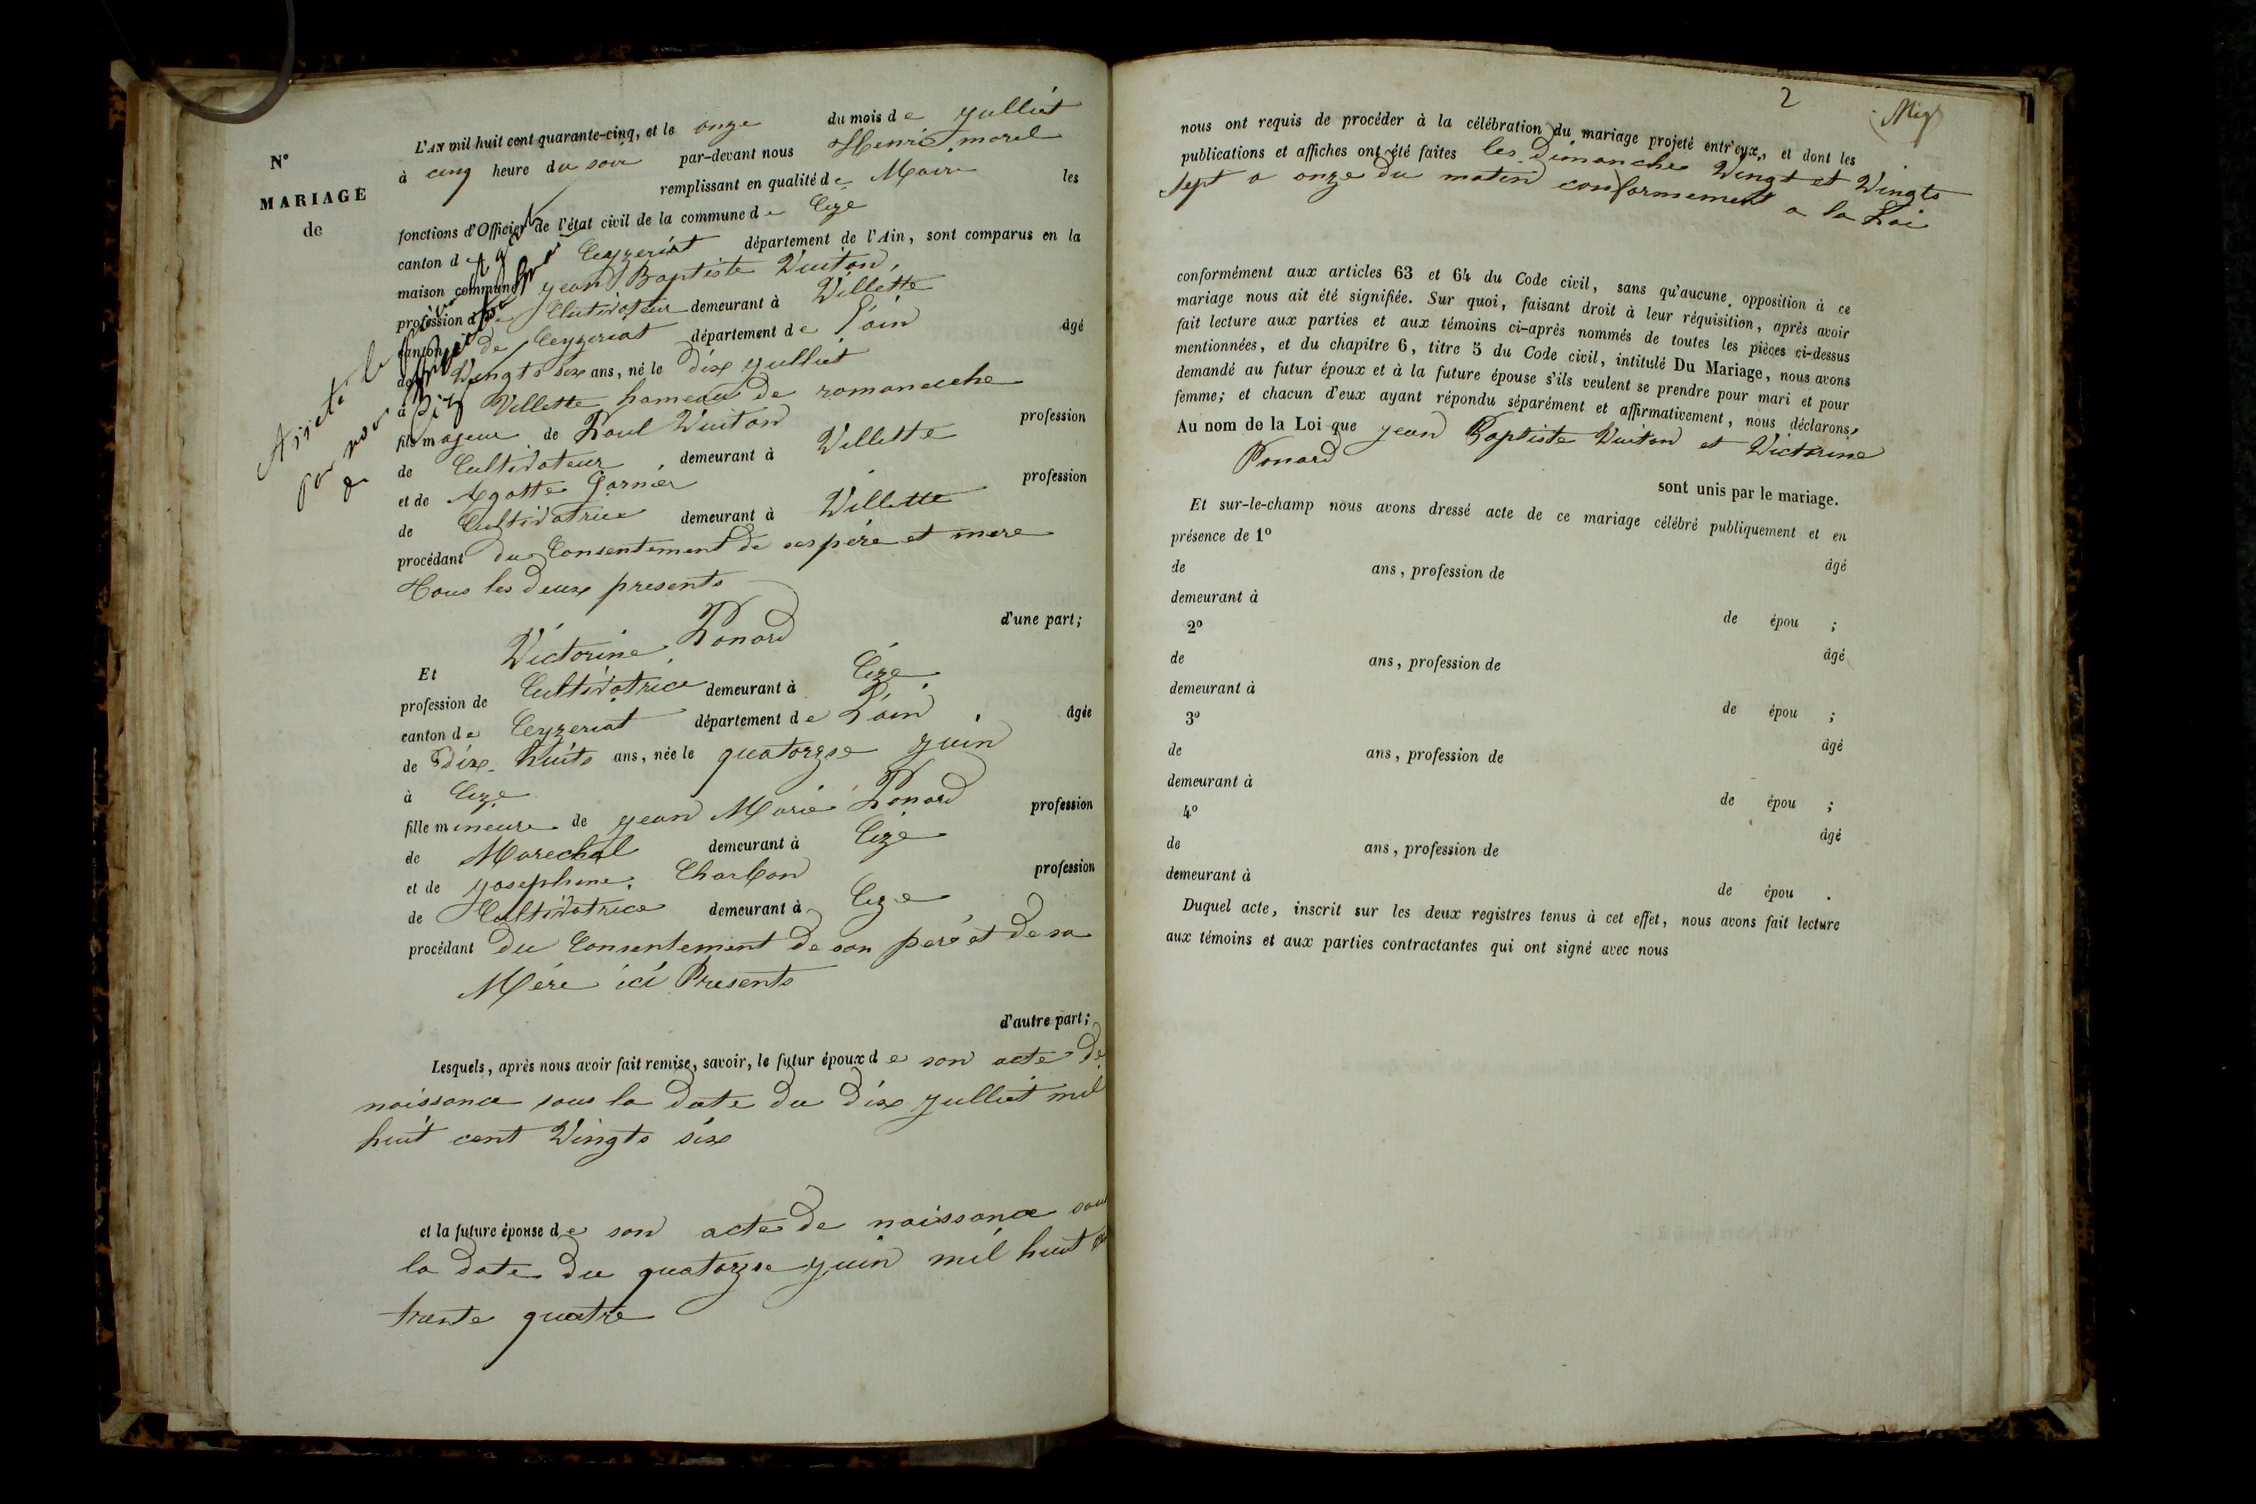 N°
MARIAGE
de
L'AN mil huit cent quarante-cinq, et le onze du mois de juillet
à cinq heure du soir par-devant nous Henri morel
remplissant en qualité de Maire les
fonctions d'Officier de l'état civil de la commune de Cize
canton de Ceyzeriat département de l'Ain, sont comparus en la
maison commune jean Baptiste Vuiton,
profession de Cultivateur demeurant à Villette
canton de Ceyzeriat département de l'ain âgé
de Vingts six ans, né le dix juilliet
à Villette hameau de romaneche
fils majeur de Paul Vuiton profession
de Cultivateur demeurant à Villette
et de Agatte Garnier profession
de Cultivatrice demeurant à Villette
procédant du Consentement de ses pére et mere
Tous les deux presents
d'une part;
Et Victorine Ponard
profession de Cultivatrice demeurant à Cize
canton de Ceyzeriat département de l'ain âgée
de dix-huits ans, née le quatorzse juin
à Cize
fille mineure de jean Marie Ponard profession
de Marechal demeurant à Cize
et de josephine Charbon profession
de Cultivatrice demeurant à Cize
procédant du Consentement de son peré et de sa
Mére ici Presents
d'autre part;
Lesquels, après nous avoir fait remise, savoir, le futur époux de son acte de
naissance sous la date du dix juilliet mil
huit cent Vingts six
et la future épouse de son acte de naissance sous
la date du quatorzse juin mil huit
trente quatre
2
nous ont requis de procéder à la célébration du mariage projeté entr'eux, et dont les
publications et affiches ont été faites les dimanche Vingt et Vingts
sept a onze du matin conformement a la Loi
conformément aux articles 63 et 64 du Code civil, sans qu'aucune opposition à ce
mariage nous ait été signifiée. Sur quoi, faisant droit à leur réquisition, après avoir
fait lecture aux parties et aux témoins ci-après nommés de toutes les pièces ci-dessus
mentionnées, et du chapitre 6, titre 5 du Code civil, intitulé Du Mariage, nous avons
demandé au futur époux et à la future épouse s'ils veulent se prendre pour mari et pour
femme; et chacun d'eux ayant répondu séparément et affirmativement, nous déclarons,
Au nom de la Loi que jean Baptiste Vuiton et Victorine
Ponard
sont unis par le mariage.
Et sur-le-champ nous avons dressé acte de ce mariage célébré publiquement et en
présence de 1° âgé
de ans, profession de
demeurant à de épou ;
2° âgé
de ans, profession de
demeurant à de épou ;
3° âgé
de ans, profession de
demeurant à de épou ;
4° âgé
de ans, profession de
demeurant à de épou .
Duquel acte, inscrit sur les deux registres tenus à cet effet, nous avons fait lecture
aux témoins et aux parties contractantes qui ont signé avec nous